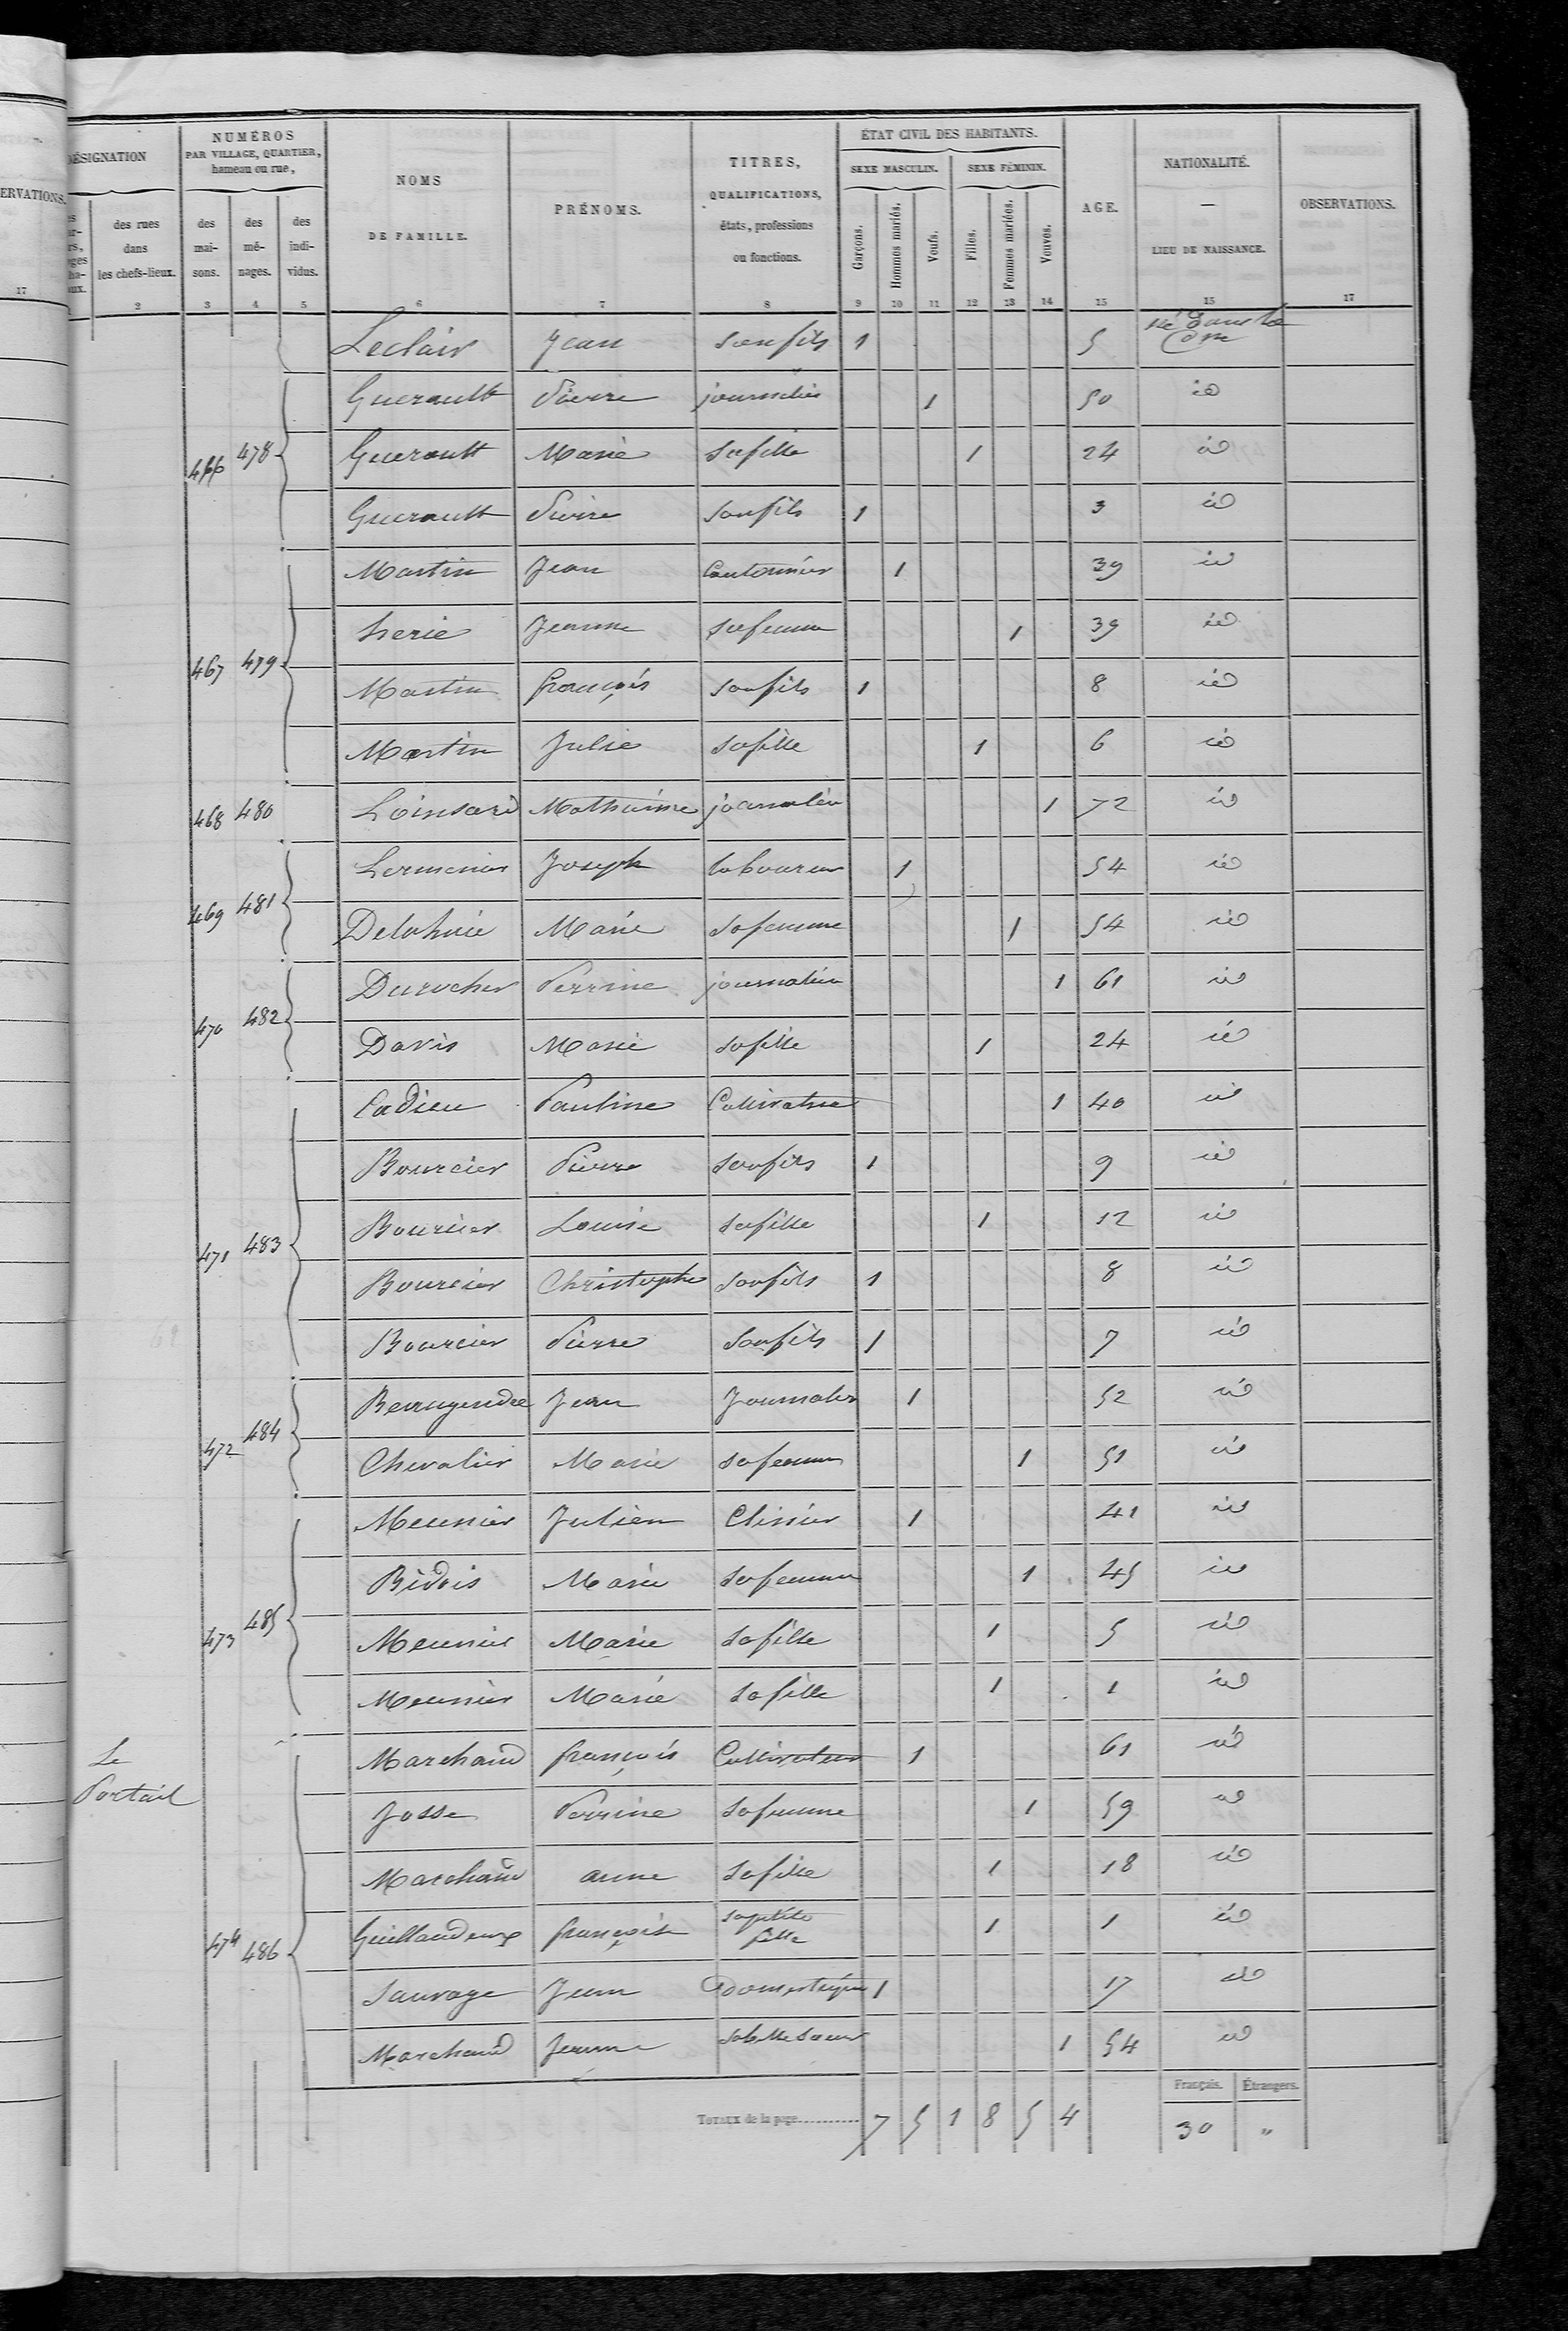 ERVATIONS.
17
DÉSIGNATION
des rues
dans
les chefs-lieux.
2
NUMÉROS
PAR VILLAGE, QUARTIER,
hameau ou rue,
des
mai-
sons.
3
des
mé-
nages.
4
des
indi-
vidus.
5
NOMS
DE FAMILLE.
6
PRÉNOMS.
7
TITRES,
QUALIFICATIONS,
états, professions
ou fonctions.
8
ÉTAT CIVIL DES HABITANTS.
SEXE MASCULIN.
SEXE FÉMININ.
Garçons.
9
Hommes mariés.
10
Veufs.
11
Filles.
12
Femmes mariées.
13
Veuves.
14
AGE.
15
NATIONALITÉ.
—
LIEU DE NAISSANCE.
15
OBSERVATIONS.
17
Leclair Jean son fils 1 5 né dans la
Cne
Guerault Pierre journalier 1 50 id
466 478 Guerault Marie sa fille 1 24 id
Guerault Pierre son fils 1 3 id
Martin Jean Cantonnier 1 39 id
Jeanne sa femme 1 39 id
467 479 Martin françois son fils 1 8 id
Martin Julie sa fille 1 6 id
468 480 Loinsard Mathurine journalière 1 72 id
Lermenier Joseph laboureur 1 54 id
469 481 Delahaie Marie sa femme 1 54 id
Durocher Perrine journalière 1 61 id
470 482 Davis Marie sa fille 1 24 id
Cadieu Pauline Cultivatrice 1 40 id
Bourcier Pierre son fils 1 9 id
Bourcier Louise sa fille 1 12 id
471 483 Bourcier Christophe son fils 1 8 id
Bourcier Pierre son fils 1 7 id
Beaugendre Jean Journalier 1 52 id
472 484 Chevalier Marie sa femme 1 51 id
Meunier Julien 1 41 id
Bidois Marie sa femme 1 45 id
473 485 Meunier Marie sa fille 1 5 id
Meunier Marie sa fille 1 1 id
Le
Portail
Marchand françois Cultivateur 1 61 id
Josse Perrine sa femme 1 59 id
Marchand anne sa fille 1 18 id
474 486 Guillaudeux françoise sa petite
fille 1 1 id
Sauvage Jean Domestique 1 17 id
Marchand Jeanne sa belle soeur 1 54 id
Français. Étrangers.
TOTAUX de la page 7 5 1 8 5 4 30 "